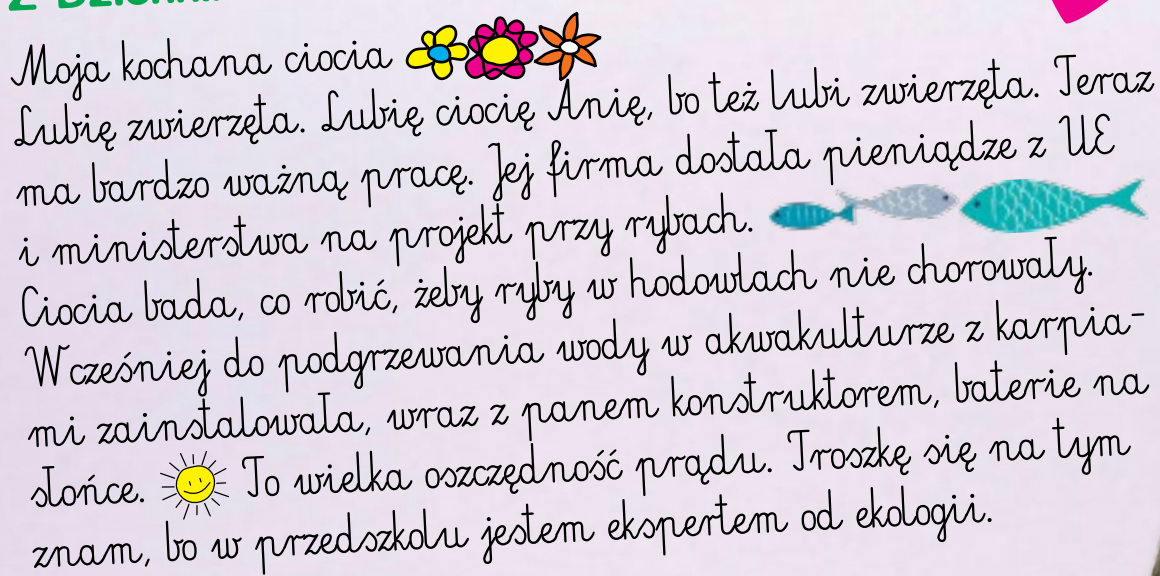 Moja kochana ciocia
Lubię zwierzęta. Lubię ciocię Anię, bo też lubi zwierzęta. Teraz
ma bardzo ważną pracę. Jej firma dostała pieniądze z UE
i ministerstwa na projekt przy rybach.
Ciocia bada, co robić, żeby ryby w hodowlach nie chorowały.
Wcześniej do podgrzewania wody w akwakulturze z karpia-
mi zainstalowała, wraz z panem konstruktorem, baterie na
słońce. To wielka oszczędność prądu. Troszkę się na tym
znam, bo w przedszkolu jestem ekspertem od ekologii.